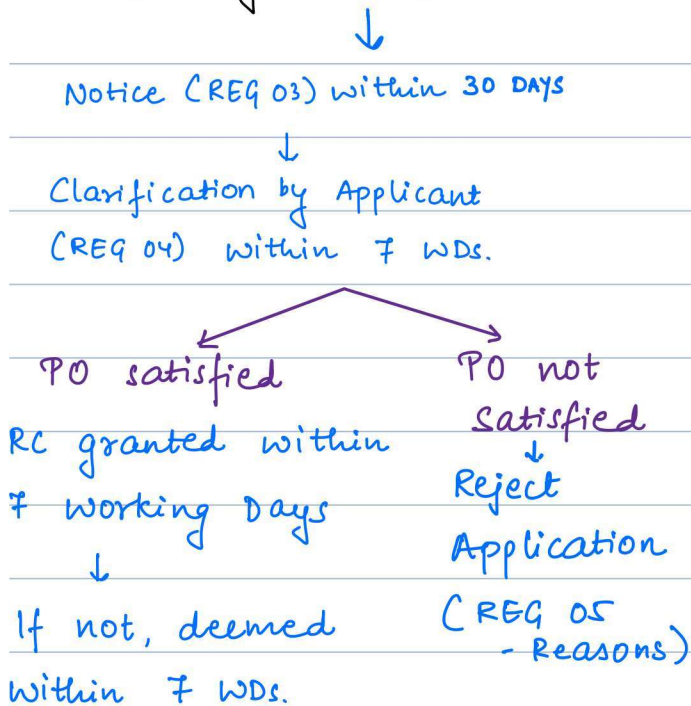 Notice (REG 03) within 30 DAYS
Clarification by Applicant
(REG 04) within 7 WDs.
PO satisfied
RC granted within
7 Working Days
If not, deemed
within 7 WDs.
PO not
Satisfied
Reject
Application
(REG 05
- Reasons)